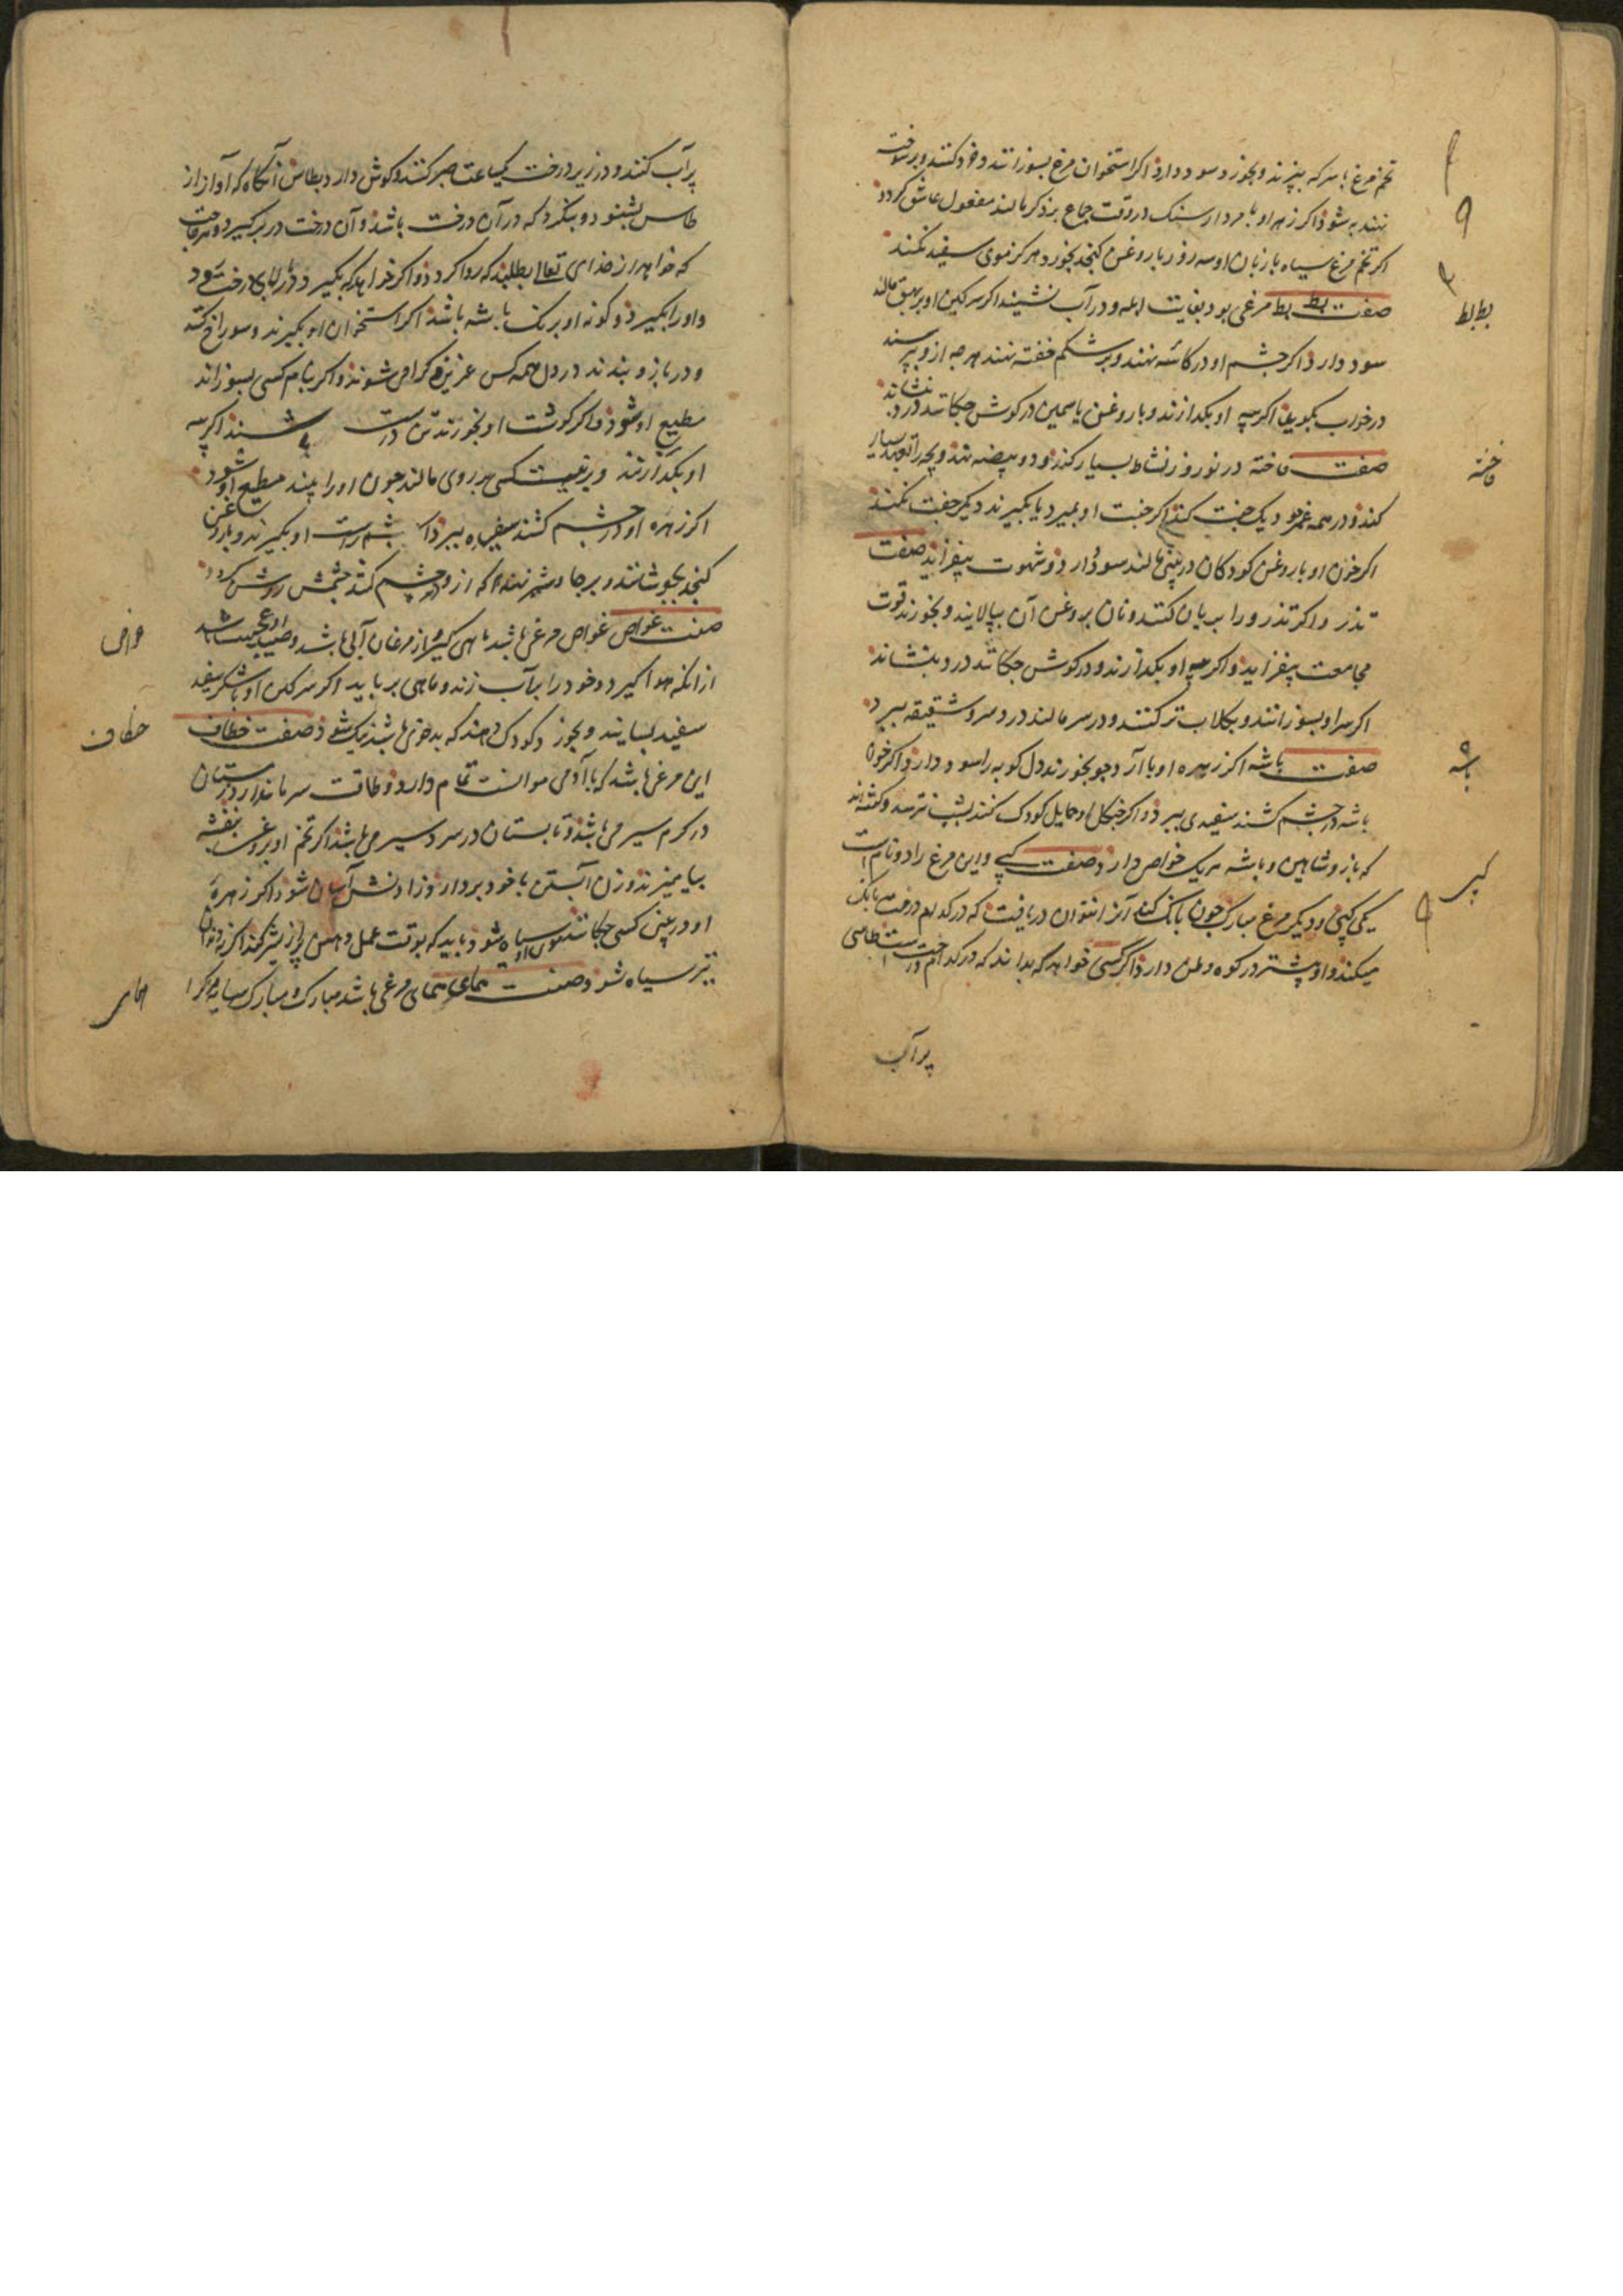 تخم مرغ با سرکه بپزند و بخورد سود دارد اکر استخوان مرغ بسوزانند و خرد کنند و بر سوخته
نهند به شود اکر زهره او با مردار سنک در وقت جماع بر ذکر مالند مفعول عاشق کردد
اکر تخم مرغ سیاه با زبان او سه روز با روغن کنجد بخورد هرکز موی سفید نکند
صفت بط بط مرغی بود بغایت ابله و در آب نشیند اکر سرکین او بر بهق مالند
بط بط
سود دارد اکر چشم او در کاسه نهند و بر شکم خفته نهند هرچه ازو پرسند
در خواب بکوید اکر پیه او بکدازند و با روغن یاسمین در کوش چکانند درد بنشاند
صفت فاخته در نوروز نشاط بسیار کند و دو بیضه نهد و بچه را تعهد بسیار
فاخته
کند و در همه عمر خود یک جفت کند اکر جفت او بمیرد یا بکیرند دیکر جفت نکند
اکر خون او با روغن کودکان در بینی مالند سود دارد و شهوت بیفزاید صفت
تذرو اکر تذرو را بریان کنند و نان بروغن آن بیالایند و بخورند قوت
مجامعت بیفزاید و اکر پیه او بکدازند و در کوش چکانند درد بنشاند
اکر سر او بسوزانند و بکلاب تر کنند و در سر مالند درد سر و شقیقه ببرد
صفت باشه اکر زهره او با آرد جو بخورند دل کوبه را سود دارد و اکر خون
باشه
باشه در چشم کشند سفیدی ببرد و اکر چنکال او حمایل کودک کنند بشب نترسد و کفته‌اند
که باز و شاهین و باشه هر یک خواص دارد صفت کپی و این مرغ را دو نام است
کپی
یکی کپی و دیکر مرغ مبارک چون بانک کند آنرا نتوان دریافت که در کدام درخت بانک
میکند و او بیشتر در کوه وطن دارد اکر کسی خواهد که بداند که در کدام درخت است طاسی
پر آب
پر آب کنند و در زیر درخت یک ساعت صبر کنند و کوش دارد بطاس آنکاه که آواز از
طاس بشنود و بنکرد که در آن درخت باشد و آن درخت در بر کیرد و هر حاجت
که خواهد از خدای تعالی بطلبد که روا کردد و اکر خواهد که بکیرد در بالای درخت رود
و او را بکیرد و کونه او برنک باشه باشد اکر استخوان او بکیرند و سوراخ کنند
و در بازو بندند در دل همه کس عزیز و کرامی شوند و اکر بنام کسی بسوزانند
مطیع او شود و اکر کوشت او بخورند تن درست باشند اکر پیه
او بکدازند و بر نیت کسی بر روی مالند چون او را بیند مطیع او شود
اکر زهره او در چشم کشند سفیده ببرد اکر چشم راست او بکیرند و با روغن
کنجد بجوشانند و بر جا نهند هر که ازو در چشم کشد چشمش روشن کردد
صفت غواص غواص مرغی باشد ماهی کیر و از مرغان آبی باشد و صید او عجیب باشد
غواص
از آنکه هوا کیرد و خود را بر آب زند و ماهی برباید اکر سرکین او با شکر سفید
سفید بسایند و بخورد کودکی دهند که بدخوی باشد نیک شود صفت خطاف
خطاف
این مرغی باشد که با آدمی موانست تمام دارد و طاقت سرما ندارد زمستان
در کرم سیر می باشد و تابستان در سرد سیر می باشد اکر تخم او بروغن بنفشه
بیامیزند و زن آبستن با خود بردارد زادنش آسان شود اکر زهره
او در بینی کسی چکانند موی او سیاه شود باید که بوقت عمل دهن پر از شیر کند اکر نه دندان
نیز سیاه شود صفت همای همای مرغی باشد مبارک و مبارک سایه هر که را
همای